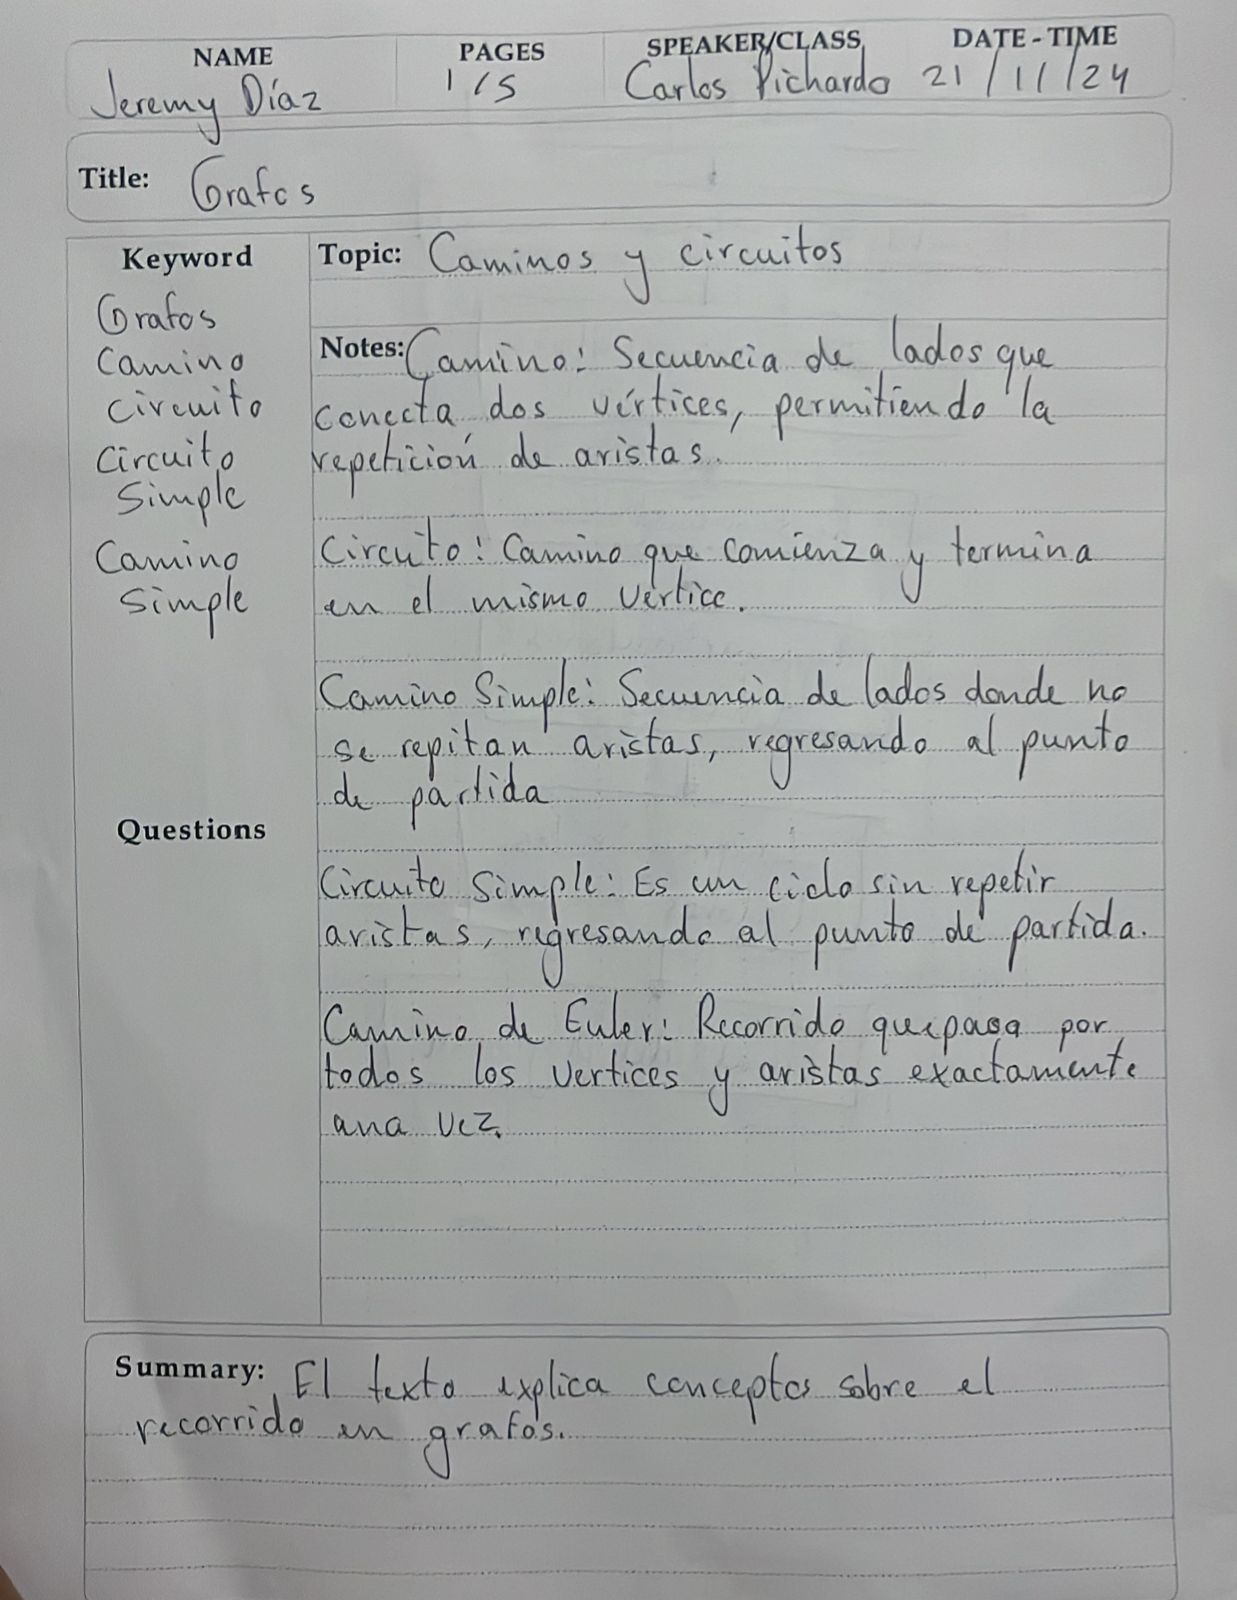 NAME PAGES SPEAKER/CLASS DATE - TIME
Jeremy Díaz 1/5 Carlos Pichardo 21/11/24
Title: Grafos
Keyword
Grafos
Camino
Circuito
Circuito
Simple
Camino
Simple
Questions
Topic: Caminos y circuitos
Notes: Camino: Secuencia de lados que
conecta dos vértices, permitiendo la
repetición de aristas.
Circuito: Camino que comienza y termina
en el mismo vértice.
Camino Simple: Secuencia de lados donde no
se repitan aristas, regresando al punto
de partida
Circuito Simple: Es un ciclo sin repetir
aristas, regresando al punto de partida.
Camino de Euler: Recorrido que pasa por
todos los vertices y aristas exactamente
una vez.
Summary: El texto explica conceptos sobre el
recorrido en grafos.